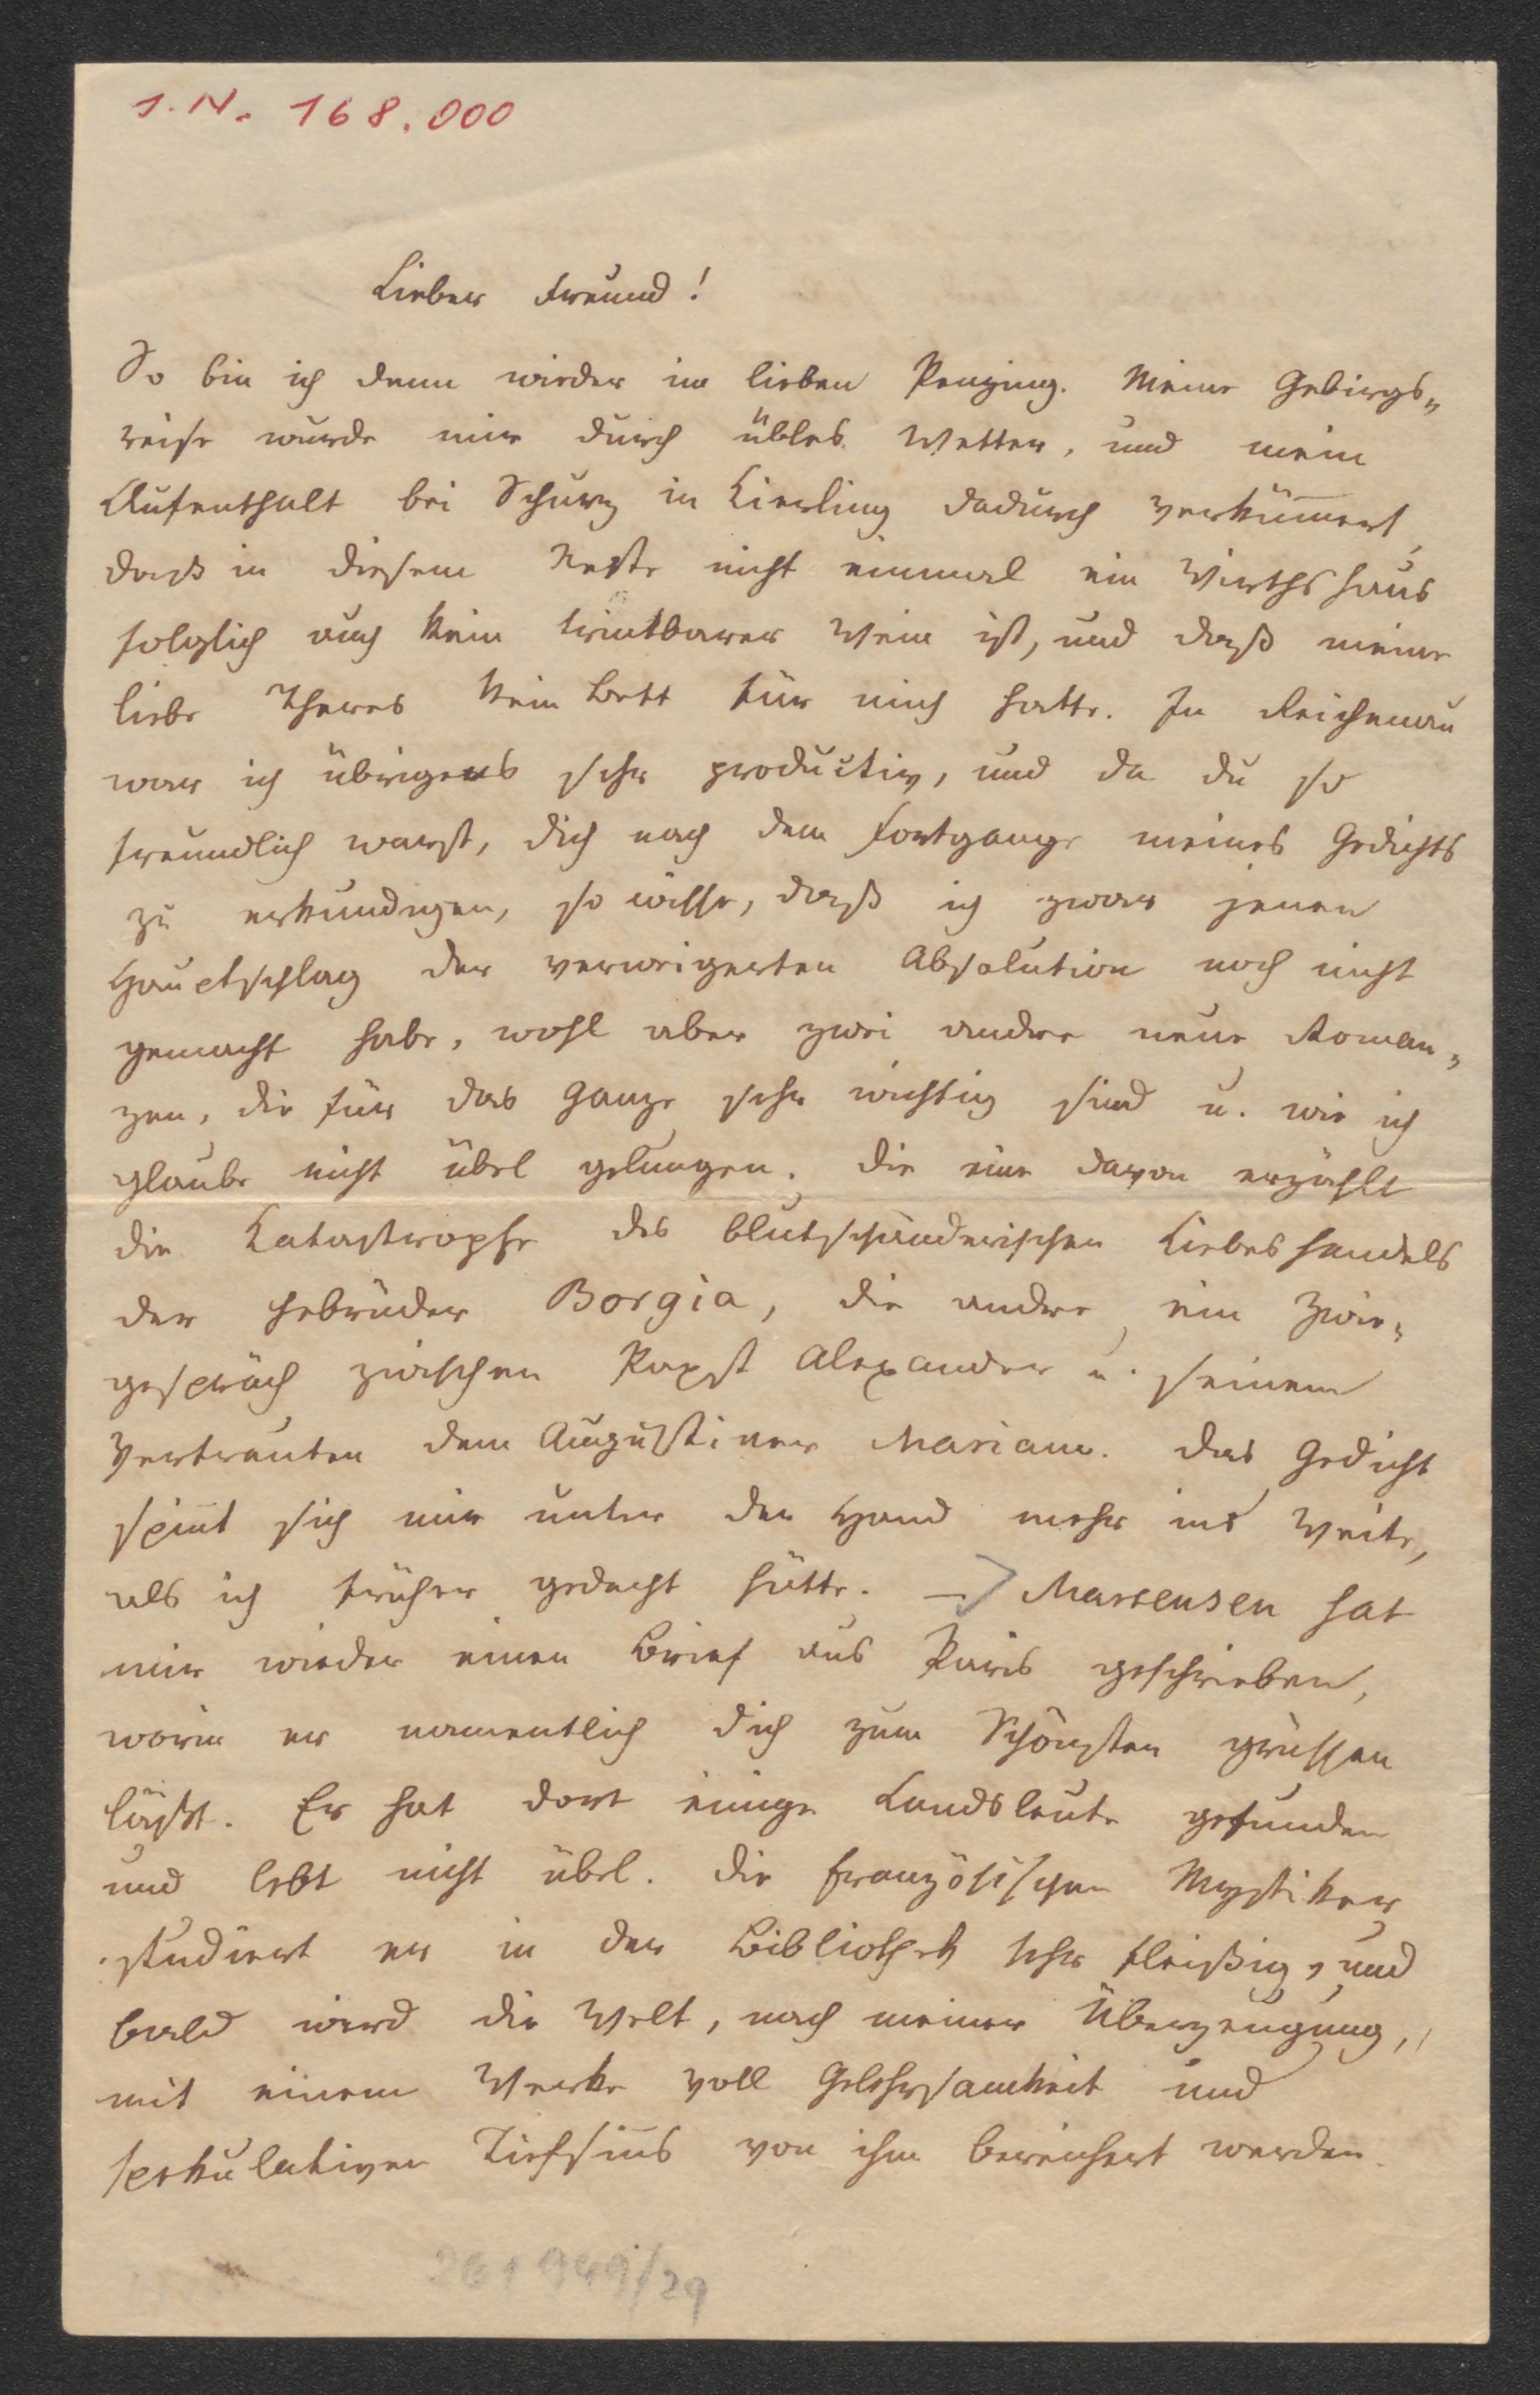 I. N. 168.000
Lieber Freund!
So bin ich denn wieder im lieben Penzing. Meine Gebirgs„
reise wurde mir durch übles Wetter, und mein
Aufenthalt bei Schurz in Kierling dadurch verkümmert,
daß in diesem Neste nicht einmal ein Wirthshaus
folglich auch kein trinkbarer Wein ist, und daß meine
liebe Theres kein Bett für mich hatte. In Reichenau
war ich übrigens sehr productiv, und da du so
freundlich warst, dich nach dem Fortgange meines Gedichts
zu erkundigen, so wisse, daß ich zwar jenen
Hauptschlag der verweigerten Absolution noch nicht
gemacht habe, wohl aber zwei andre neue Roman„
zen, die für das Ganze sehr wichtig sind u. wie ich
glaube nicht übel gelungen. Die eine davon erzählt
die Katastrophe des blutschänderischen Liebeshandels
der Gebrüder Borgia, die andre ein Zwie„
gespräch zwischen Papst Alexander u. seinem
Vertrauten dem Augustiner Mariano. Das Gedicht
spiñt sich mir unter der Hand mehr ins Weite,
als ich früher gedacht hätte. – Martensen hat
mir wieder einen Brief aus Paris geschrieben,
worin er namentlich dich zum Schönsten grüssen
läßt. Er hat dort einige Landsleute gefunden
und lebt nicht übel. Die französischen Mystiker
studiert er in der Bibliothek sehr fleißig, und
bald wird die Welt, nach meiner Überzeugung,
mit einem Werke voll Gelehrsamkeit und
spekulativen Tiefsiñs von ihm bereichert werden.
261949/29